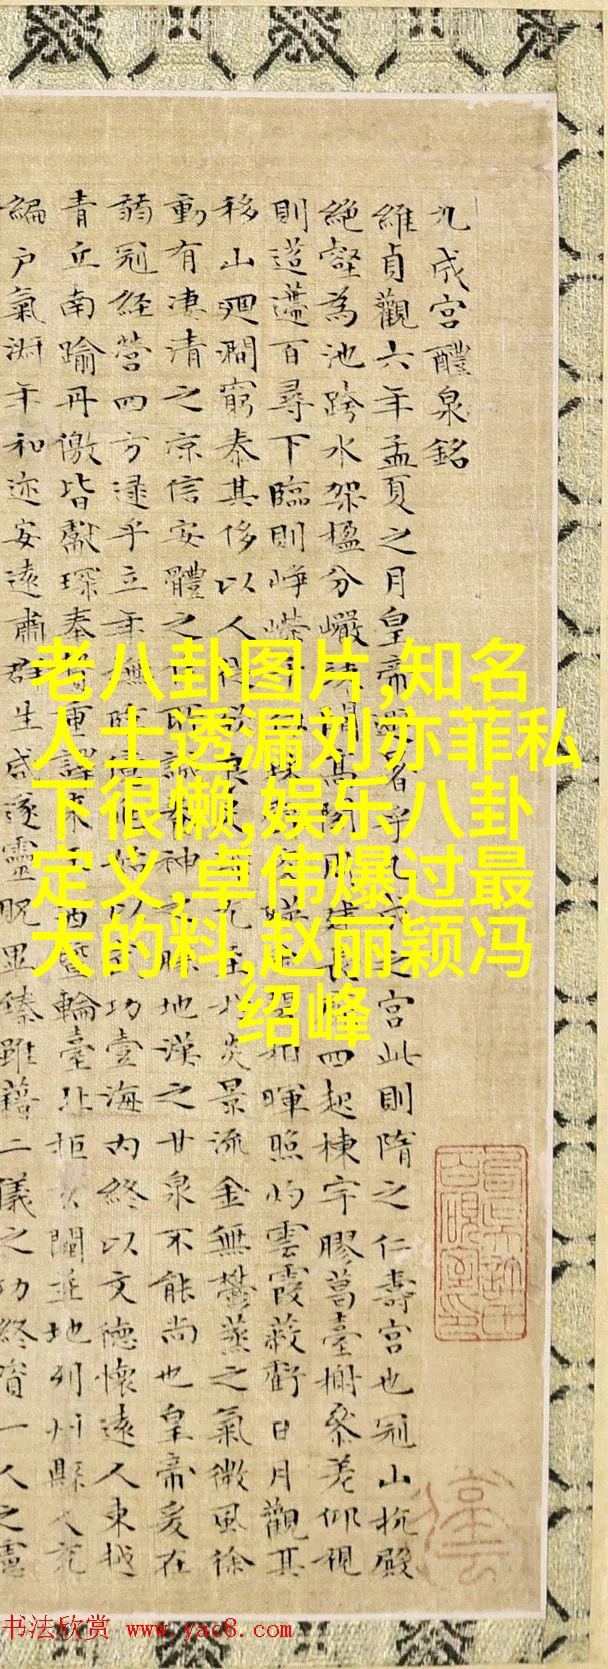 九成宮醴泉銘
維貞觀六年孟夏之月皇帝避暑乎九成之宮此則隋之仁壽宮也冠山抗殿
絕壑為池跨水架楹分巖竦闕高閣周建長廊四起棟宇膠葛臺榭參差仰視
則迢遰百尋下臨則崢嶸千仞珠璧交映金碧相暉照灼雲霞蔽虧日月觀其
移山迴澗窮泰其侈以人從欲良足深尤至於炎景流金無鬱蒸之氣微風徐
動有凄清之涼信安體之佳所誠養神之勝地漢之甘泉不能尚也皇帝爰在
弱冠經營四方逮乎立年撫臨億兆始以武功壹海内終以文德懷遠人東越
青丘南踰丹徼皆獻琛奉贄重譯來王西暨輪臺北拒玄闕並地列州縣人充
編户氣淑年和迩安遠肅群生咸遂靈貺畢臻雖藉二儀之功終資一人之慮
老八卦图片,知名
人士透漏刘亦菲私
下很懒,娱乐八卦
定义,卓伟爆过最
大的料,赵丽颖冯
绍峰
书法欣赏 www.yac8.com